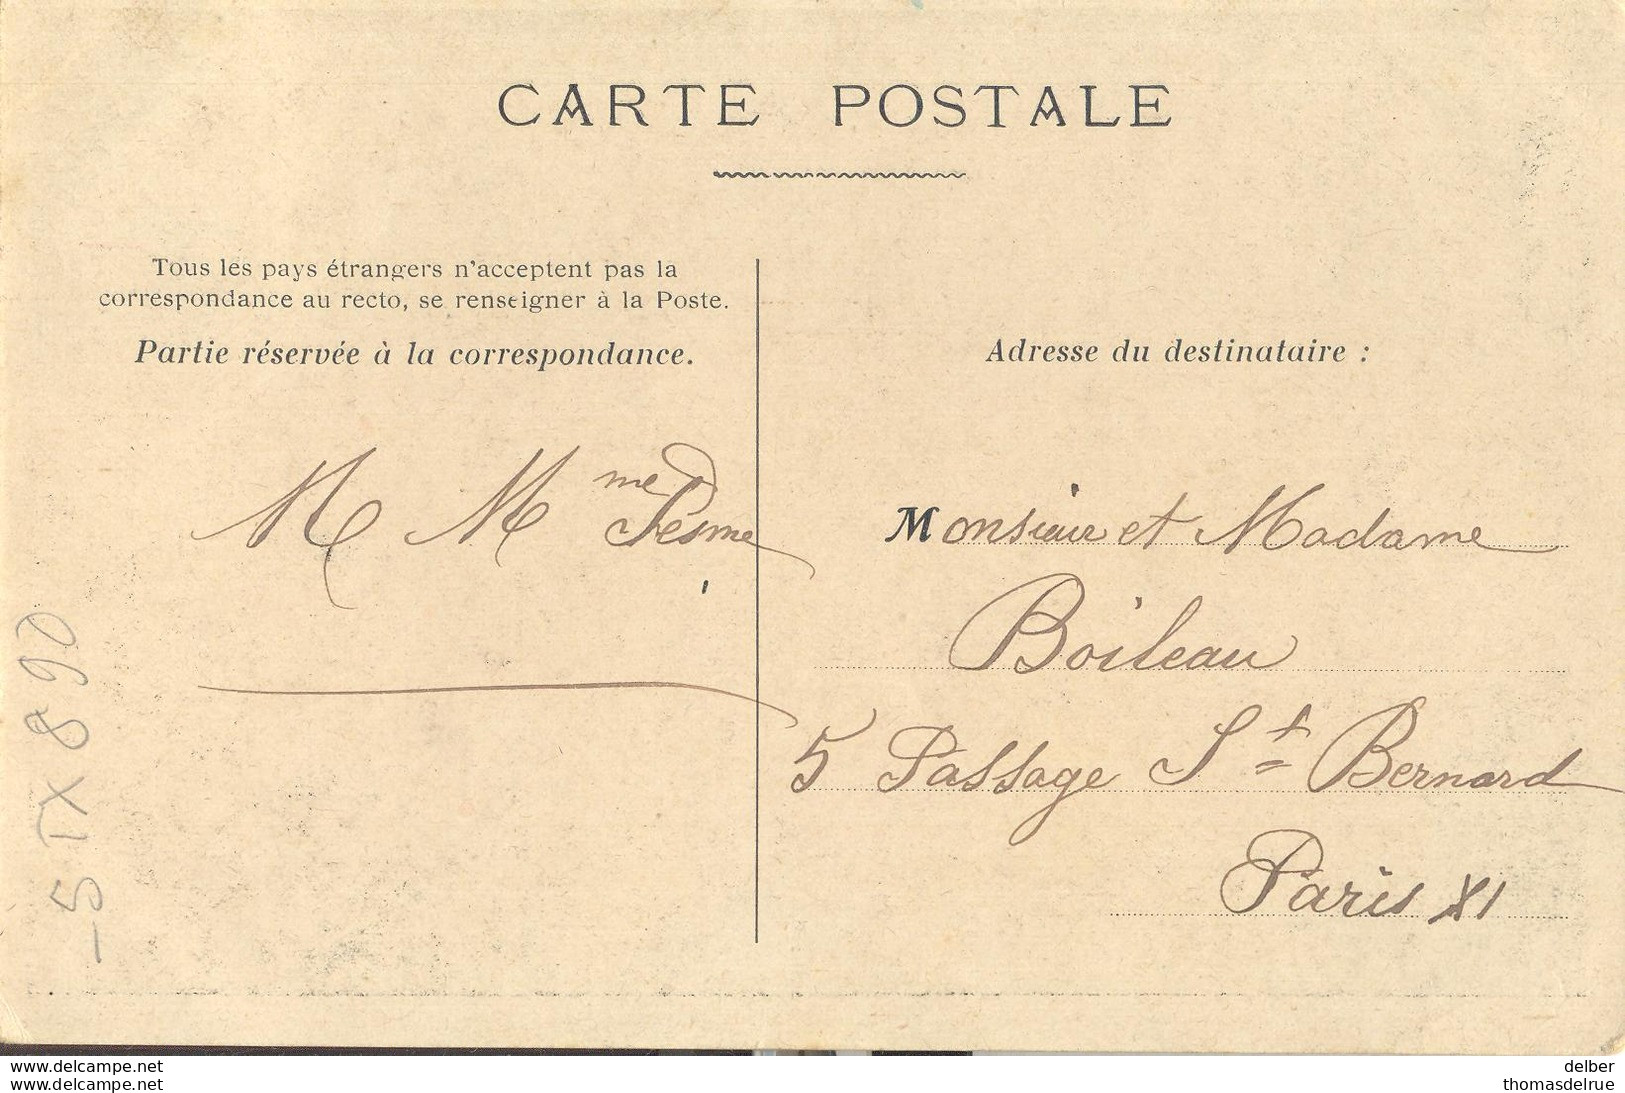 CARTE POSTALE
Tous les pays étrangers n'acceptent pas la
correspondance au recto, se renseigner à la Poste.
Partie réservée à la correspondance.
M Mme Pesme
Adresse du destinataire :
Monsieur et Madame
Boileau
5 Passage St Bernard
Paris XI
-5 IX 890
www.delcampe.net
www.delcampe.net
delber
thomasdelrue